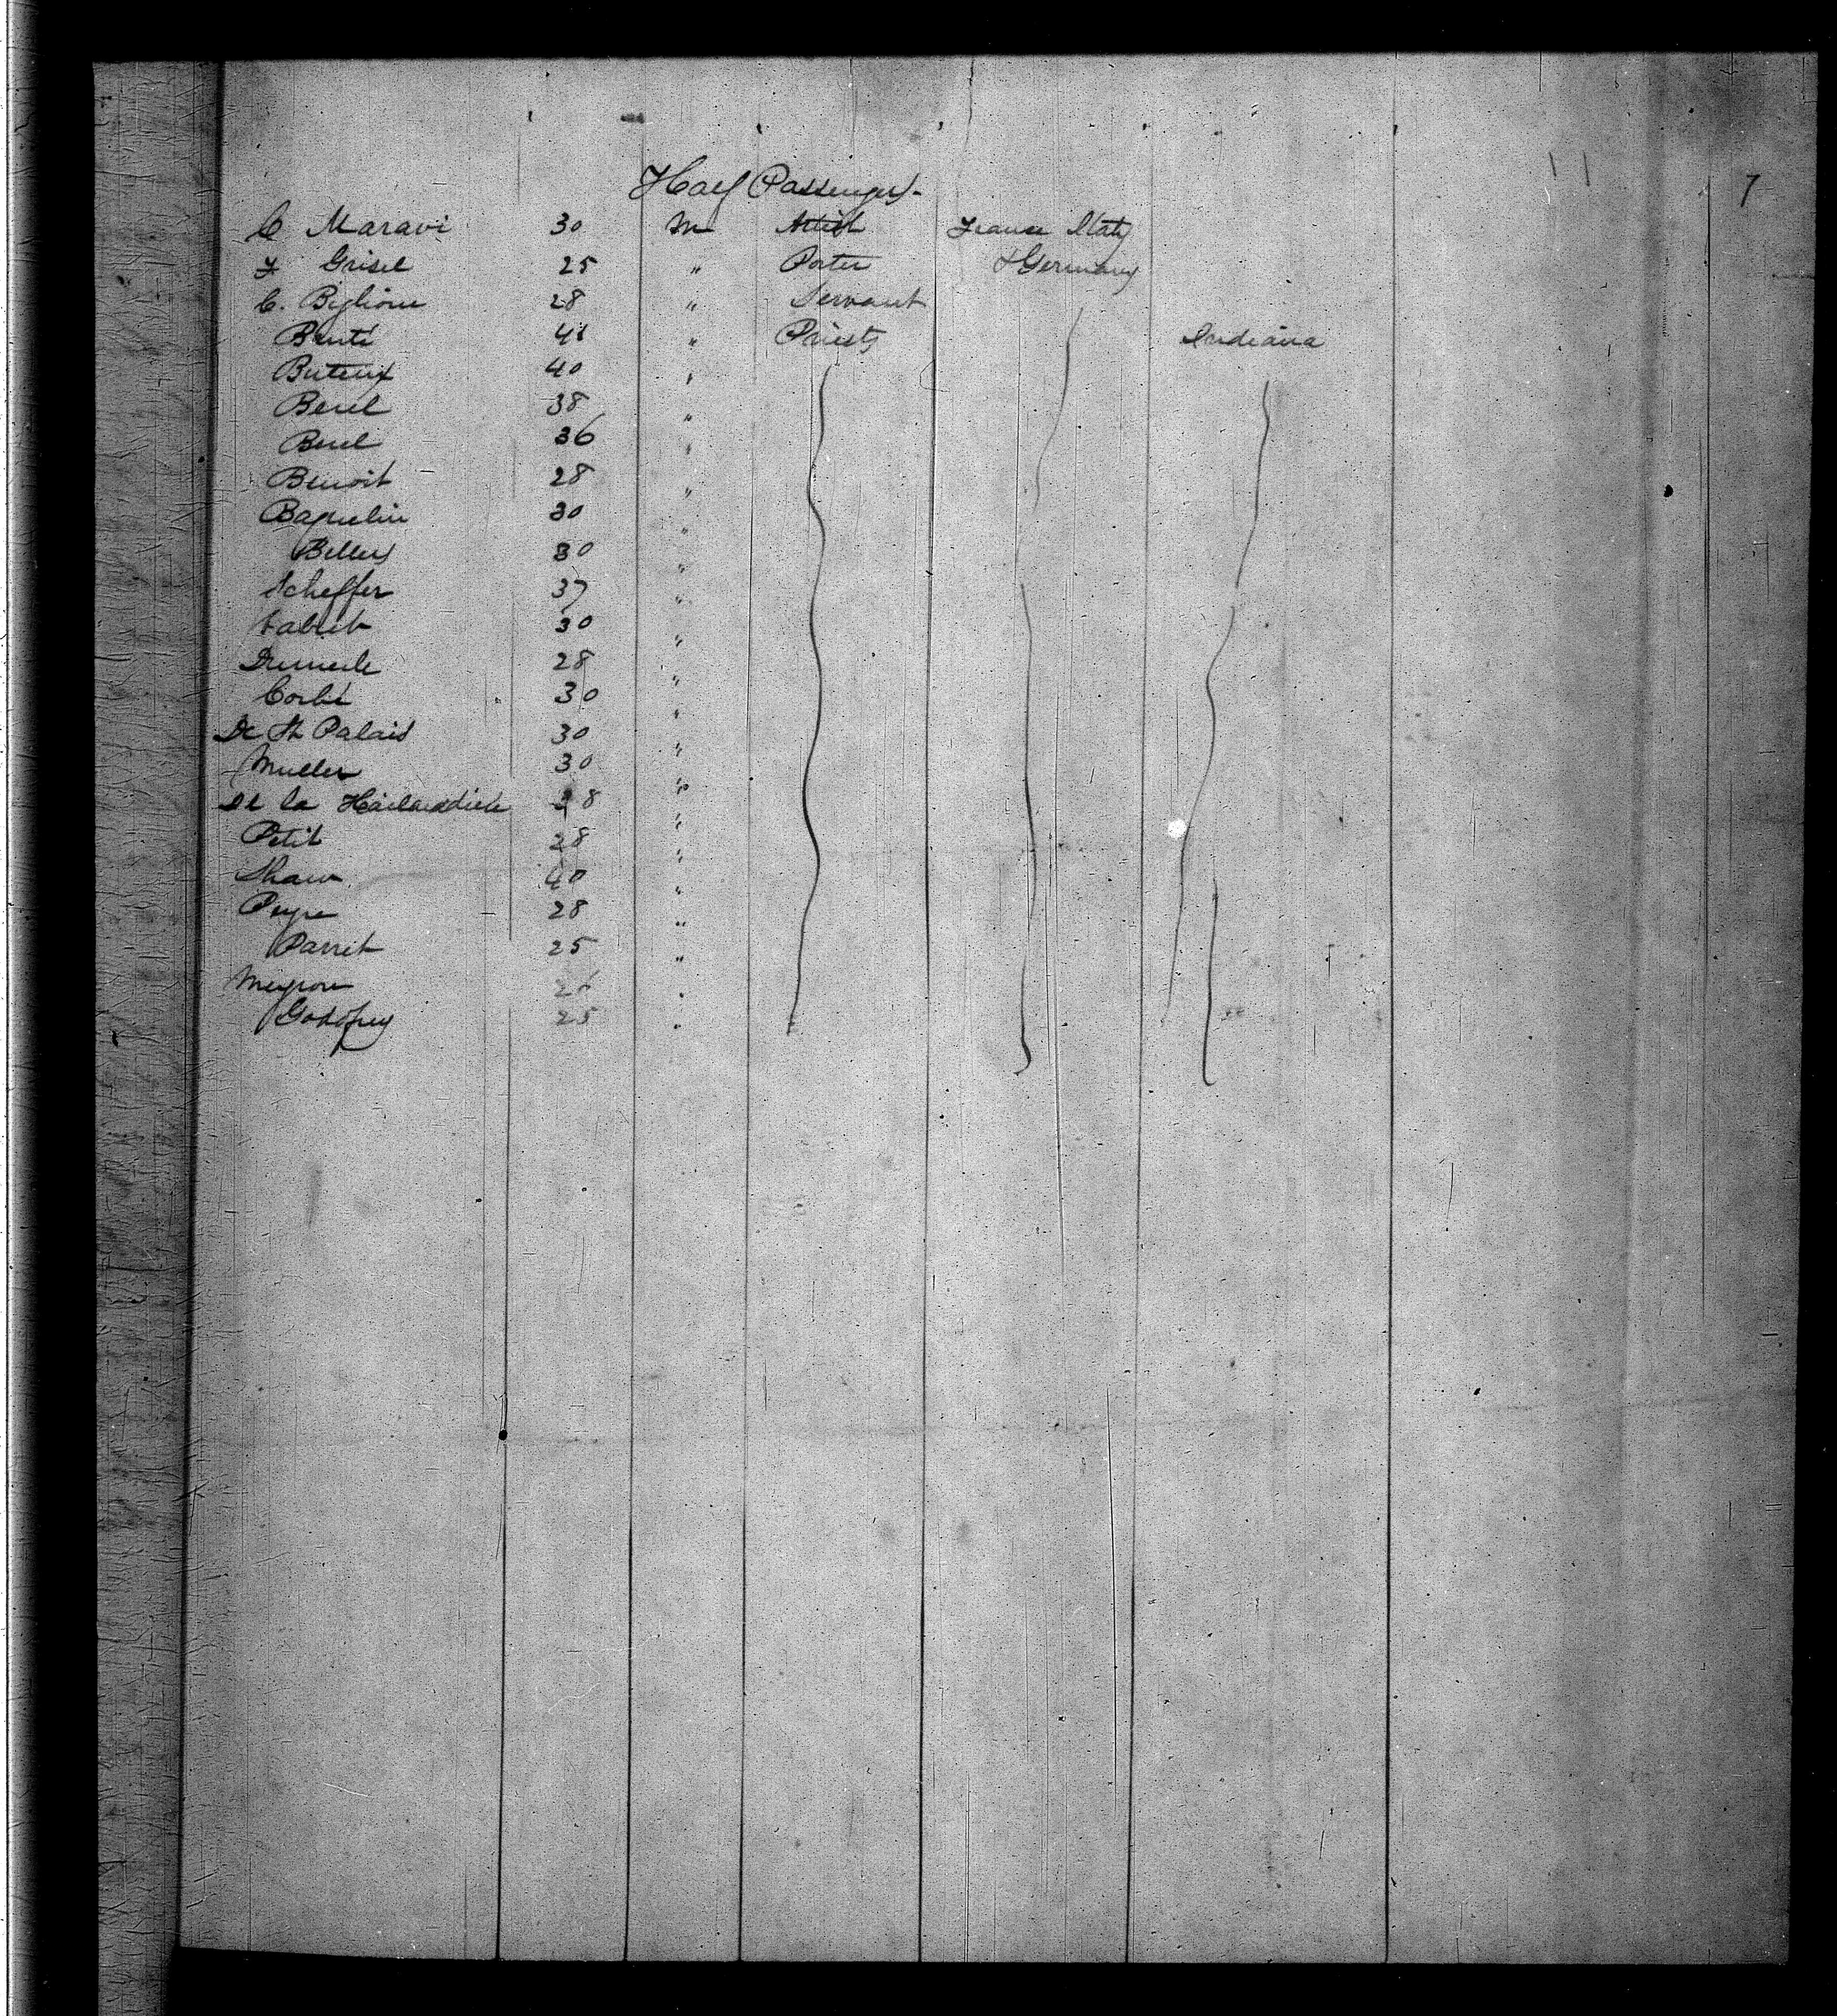 7
Half Passengers
C Maravi 30 m Artist France Italy
F Grisel 25 " Porter & Germany
C. Biglione 28 " Servant
Bruté 41 " Priests Indiana
Buteux 40 "
Berel 38 "
Berel 36 "
Benoit 28 "
Baquelin 30 "
Bellus 30 "
Scheffer 37 "
Labut 30 "
Dumerle 28 "
Corbé 30 "
De St Palais 30 "
Muller 30 "
De la Hailandiere 28 "
Petit 28 "
Shaw 40 "
Peyre 28 "
Parret 25 "
Meyron 26 "
Godfrey 25 "